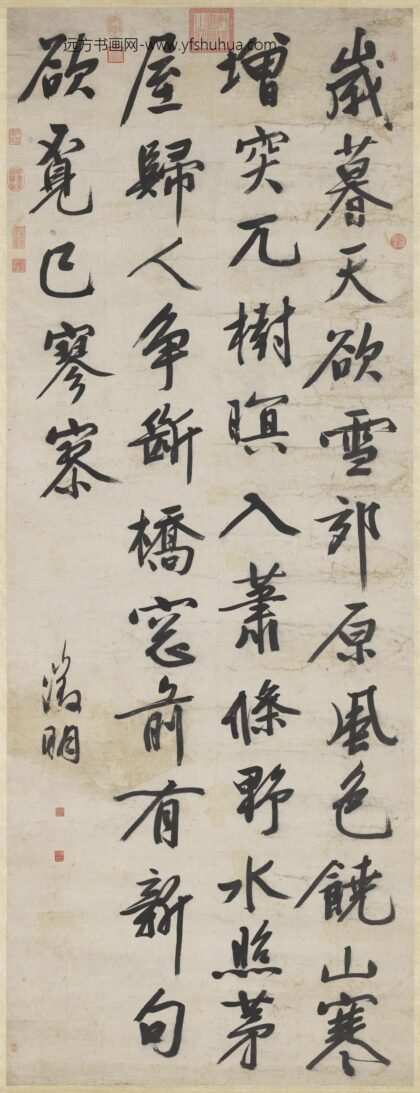 远方书画网-www.yfshuhua.com
歲暮天欲雪郊原風色饒山寒
增突兀樹暝入蕭條野水照茅
屋歸人爭斷橋窓前有新句
欲覓已寥寥
徵明